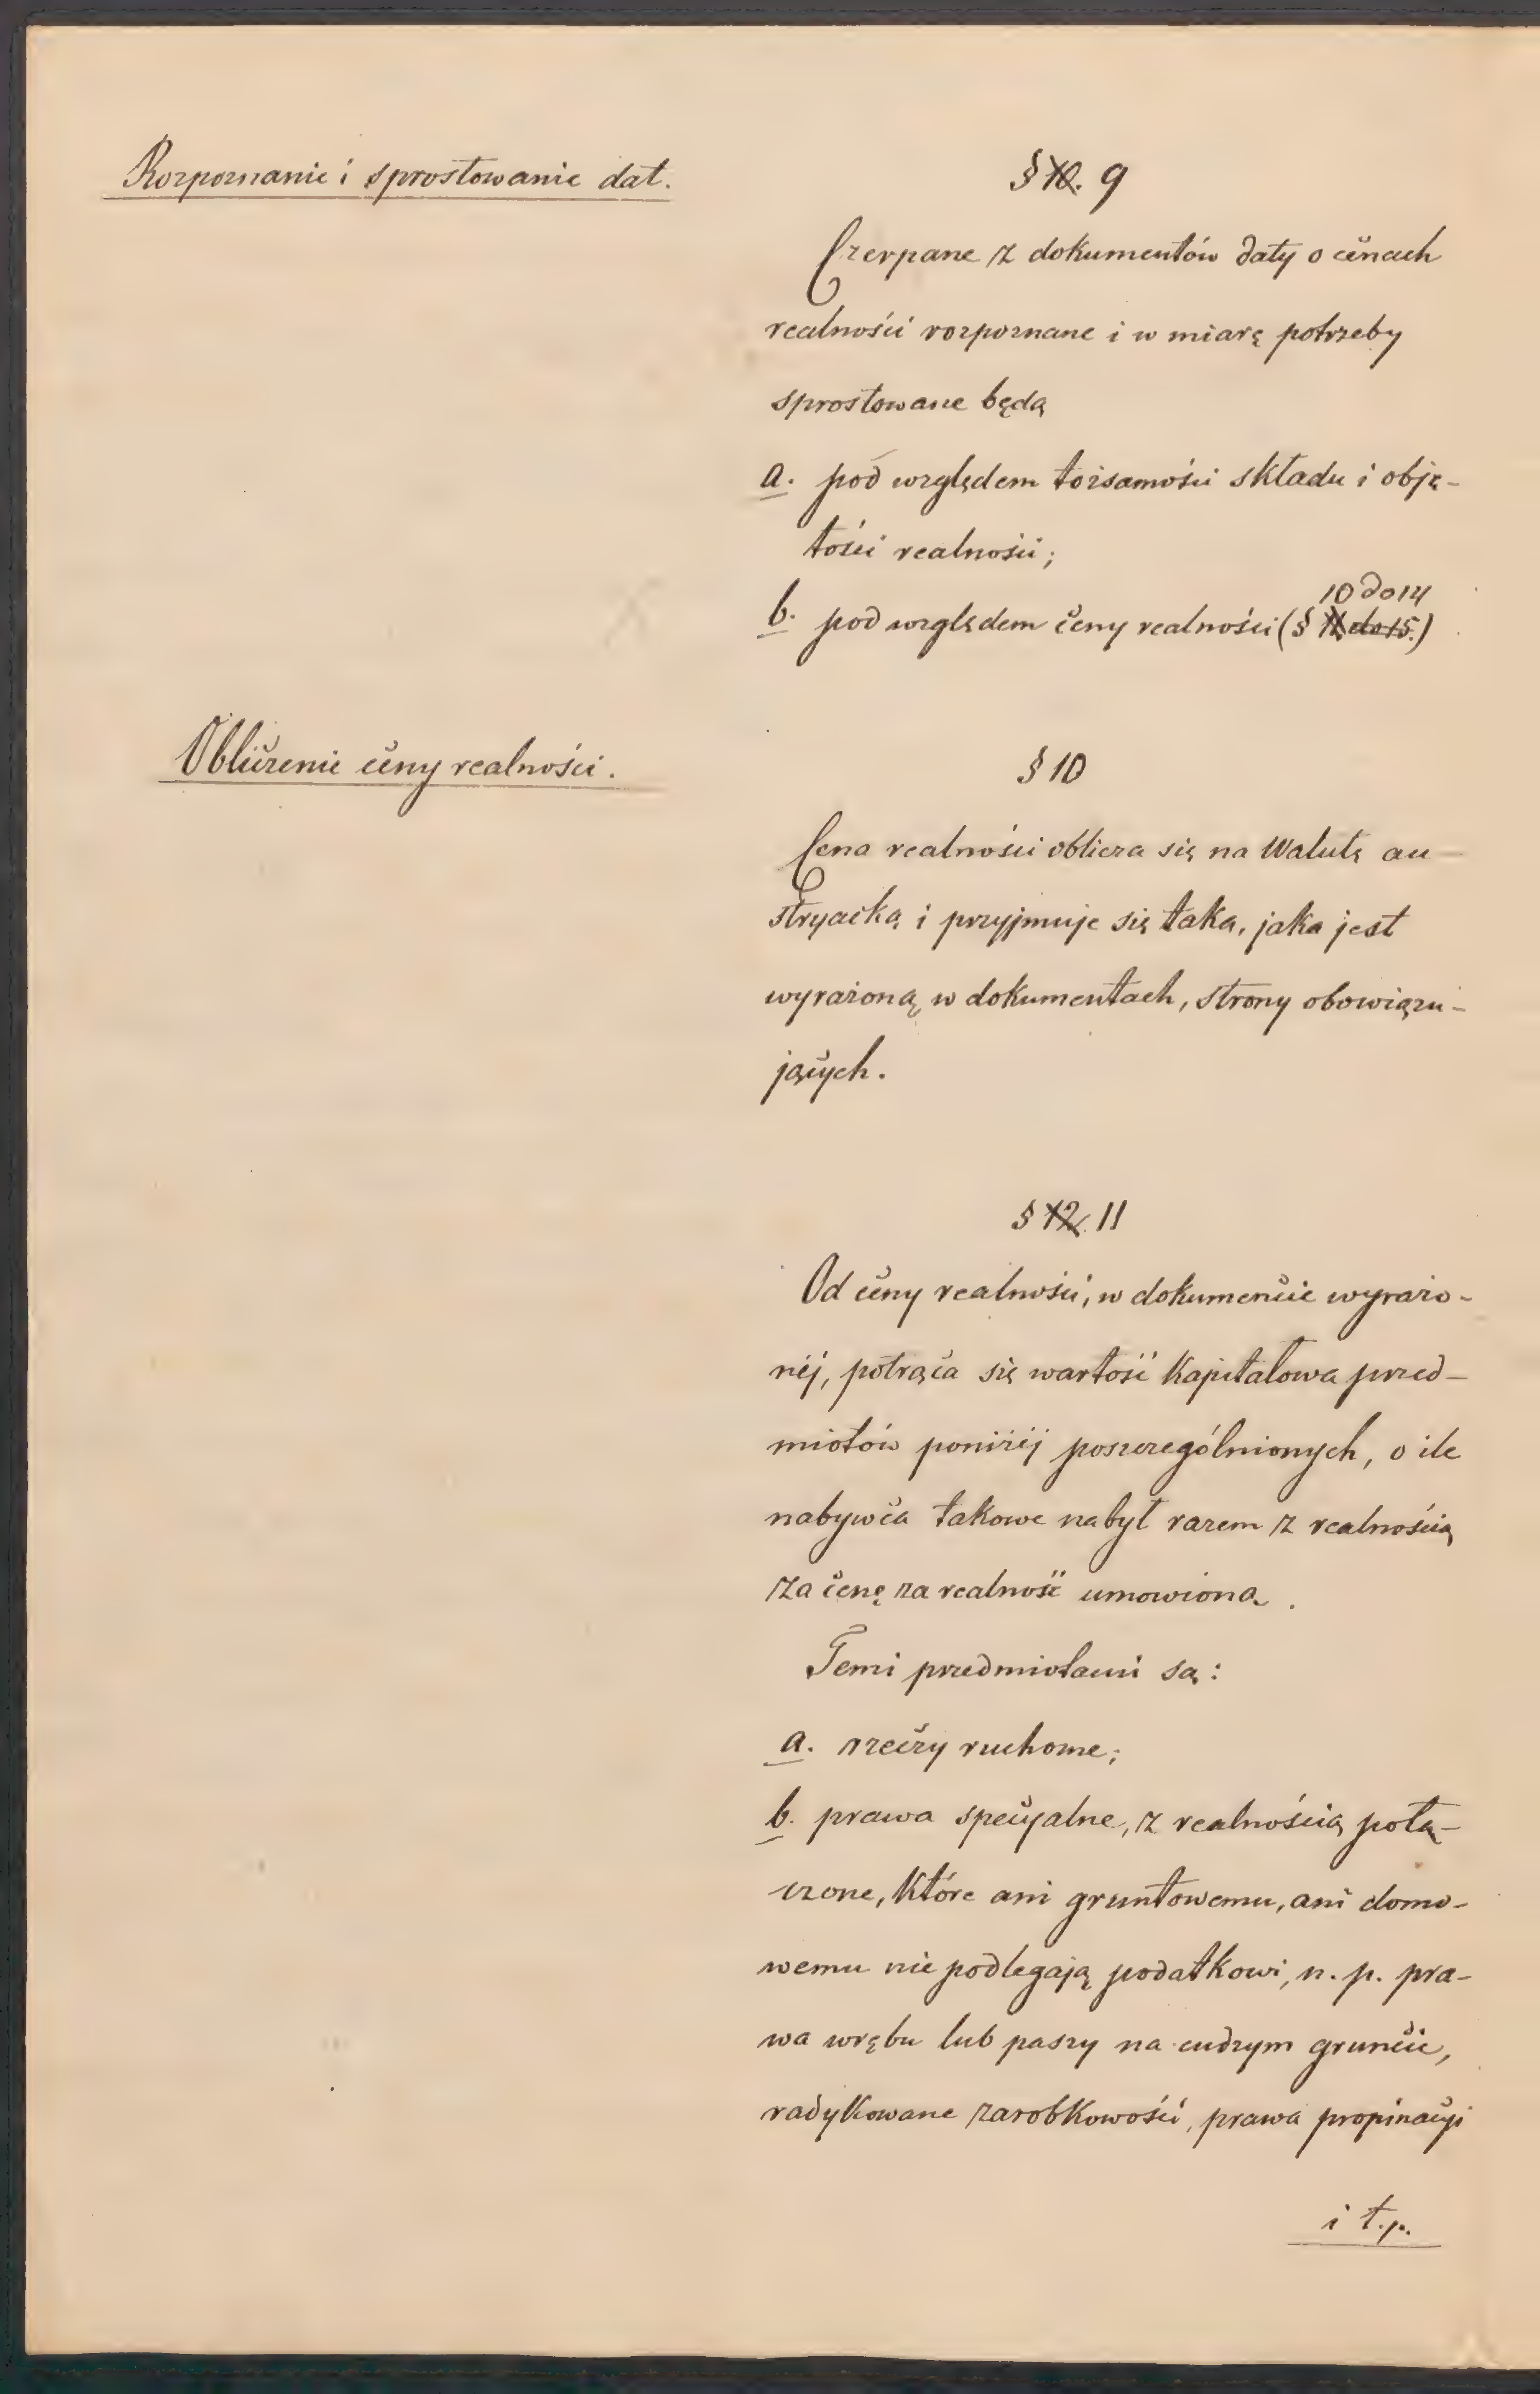 Rozpoznanie i sprostowanie dat.
§ 10. 9
Czerpane z dokumentów daty o cenach
realności rozpoznane i w miarę potrzeby
sprostowane będą
a. pod względem tożsamości składu i obję-
tości realności;
10 do 14
b. pod względem ceny realności (§ 11 do 15.)
Obliczenie ceny realności.
§ 10
Cena realności oblicza się na Walutę au-
stryacką i przyjmuje się taka, jaka jest
wyrażoną w dokumentach, strony obowiązu-
jących.
§ 12. 11
Od ceny realności, w dokumencie wyrażo-
néj, potrąca się wartość kapitałowa przed-
miotów poniżéj poszczególnionych, o ile
nabywca takowe nabył razem z realnością
za cenę za realność umowioną.
Temi przedmiotami są:
a. rzeczy ruchome;
b. prawa specyalne, z realnością połą-
czone, które ani gruntowemu, ani domo-
wemu nie podlegają podatkowi, n. p. pra-
wa wrębu lub paszy na cudzym gruncie,
radykowane zarobkowości, prawa propinacyi
i t.p.